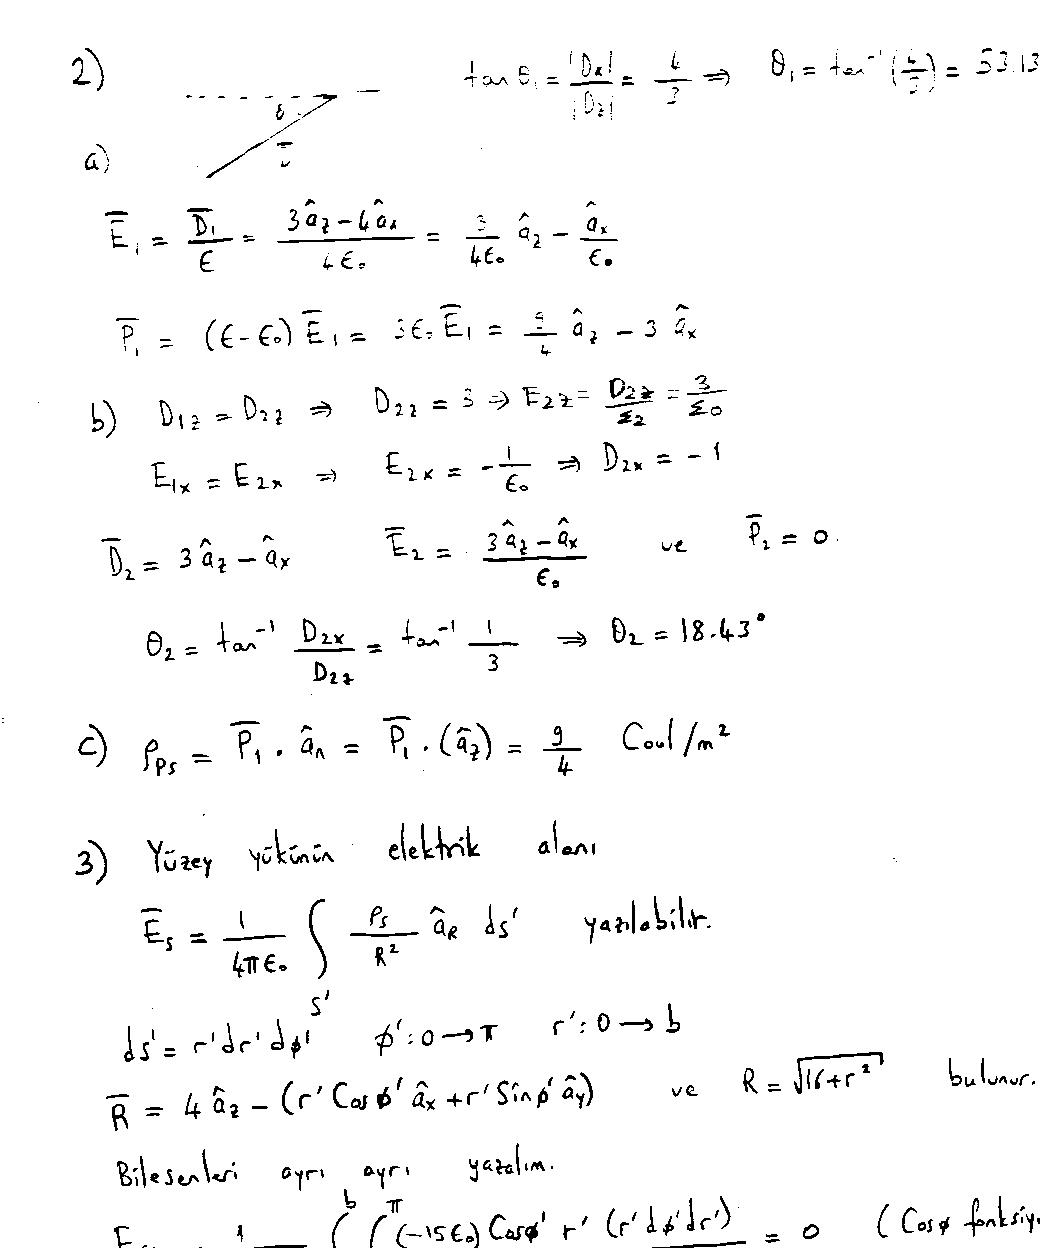 2) tan θ₁ = |Dx| / |Dz| = 4/3 ⇒ θ₁ = tan⁻¹(4/3) = 53.13
a)
Ē₁ = D̄₁/ϵ = (3â_z − 4â_x)/4ϵ₀ = 3/4ϵ₀ â_z − â_x/ϵ₀
P̄₁ = (ϵ-ϵ₀) Ē₁ = 3ϵ₀ Ē₁ = 9/4 â_z − 3 â_x
b) D₁z = D₂z ⇒ D₂z = 3 ⇒ E₂z = D₂z/ε₂ = 3/ε₀
E₁x = E₂x ⇒ E₂x = − 1/ϵ₀ ⇒ D₂x = −1
D̄₂ = 3â_z − â_x Ē₂ = (3â_z − â_x)/ϵ₀ ve P̄₂ = 0.
θ₂ = tan⁻¹ D₂x/D₂z = tan⁻¹ 1/3 ⇒ θ₂ = 18.43°
c) ρ_ps = P̄₁ . â_n = P̄₁ . (â_z) = 9/4 Coul/m²
3) Yüzey yükünün elektrik alanı
Ē_s = 1/4πϵ₀ ∫_S' ρs/R² â_R ds' yazılabilir.
ds' = r'dr'dϕ' ϕ': 0→π r': 0→b
R̄ = 4â_z − (r'Cosϕ' â_x + r'Sinϕ' â_y) ve R = √(16+r²) bulunur.
Bileşenleri ayrı ayrı yazalım.
b π (-15ϵ₀) Cosϕ' r' (r'dϕ'dr') = 0 (Cosϕ